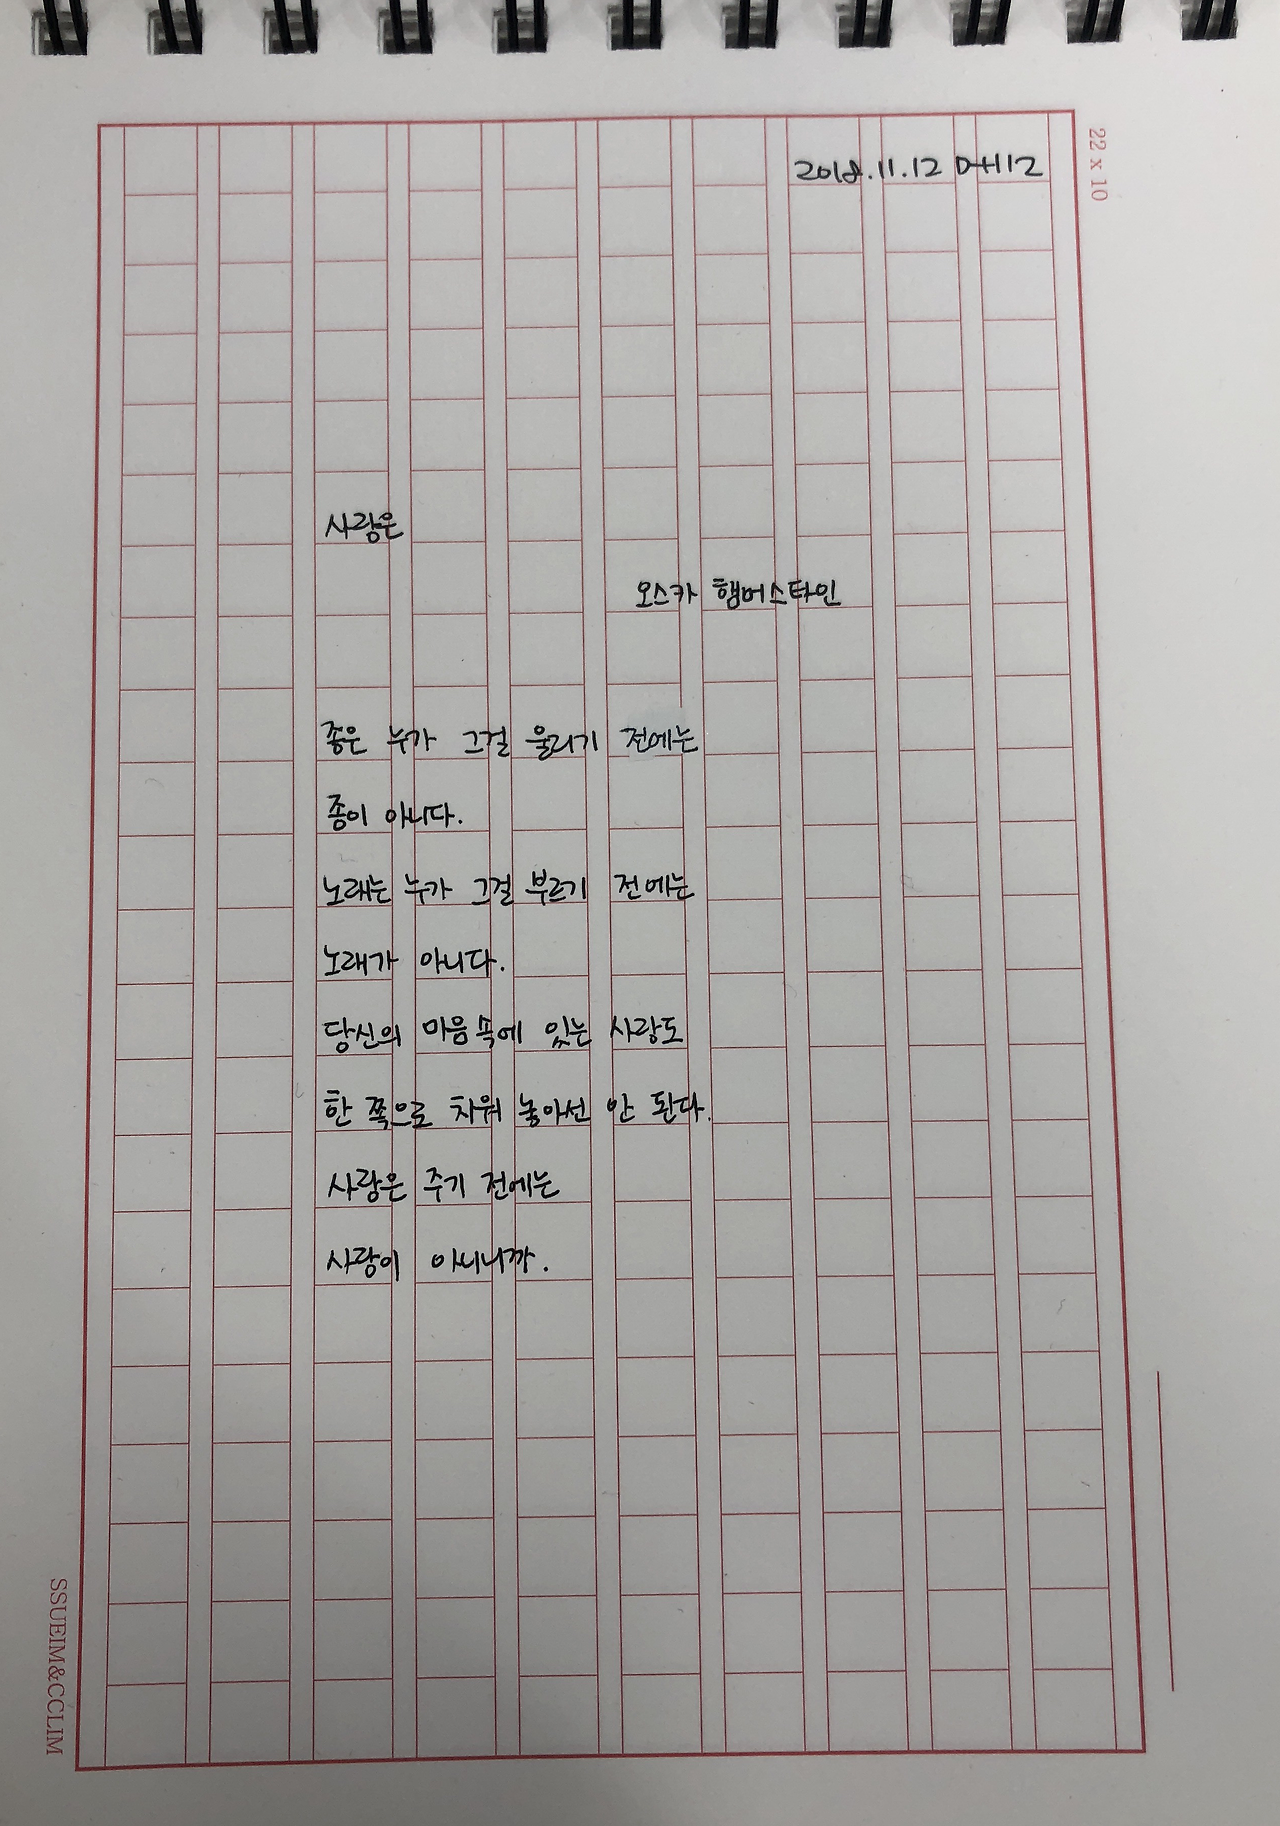 2018.11.12 D+112
22 x 10
사랑은
오스카 햄머스타인
종은 누가 그걸 울리기 전에는
종이 아니다.
노래는 누가 그걸 부르기 전에는
노래가 아니다.
당신의 마음속에 있는 사랑도
한 쪽으로 치워 놓아선 안 된다.
사랑은 주기 전에는
사랑이 아니니까.
SSUEIM&CCLIM